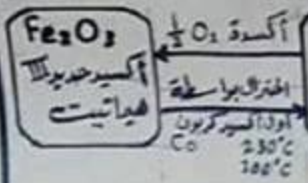 Fe₂O₃
أكسيد حديد III
هيماتيت
أكسدة ½ O₂
اختزال بواسطة
أول أكسيد كربون
CO 230°C
300°C